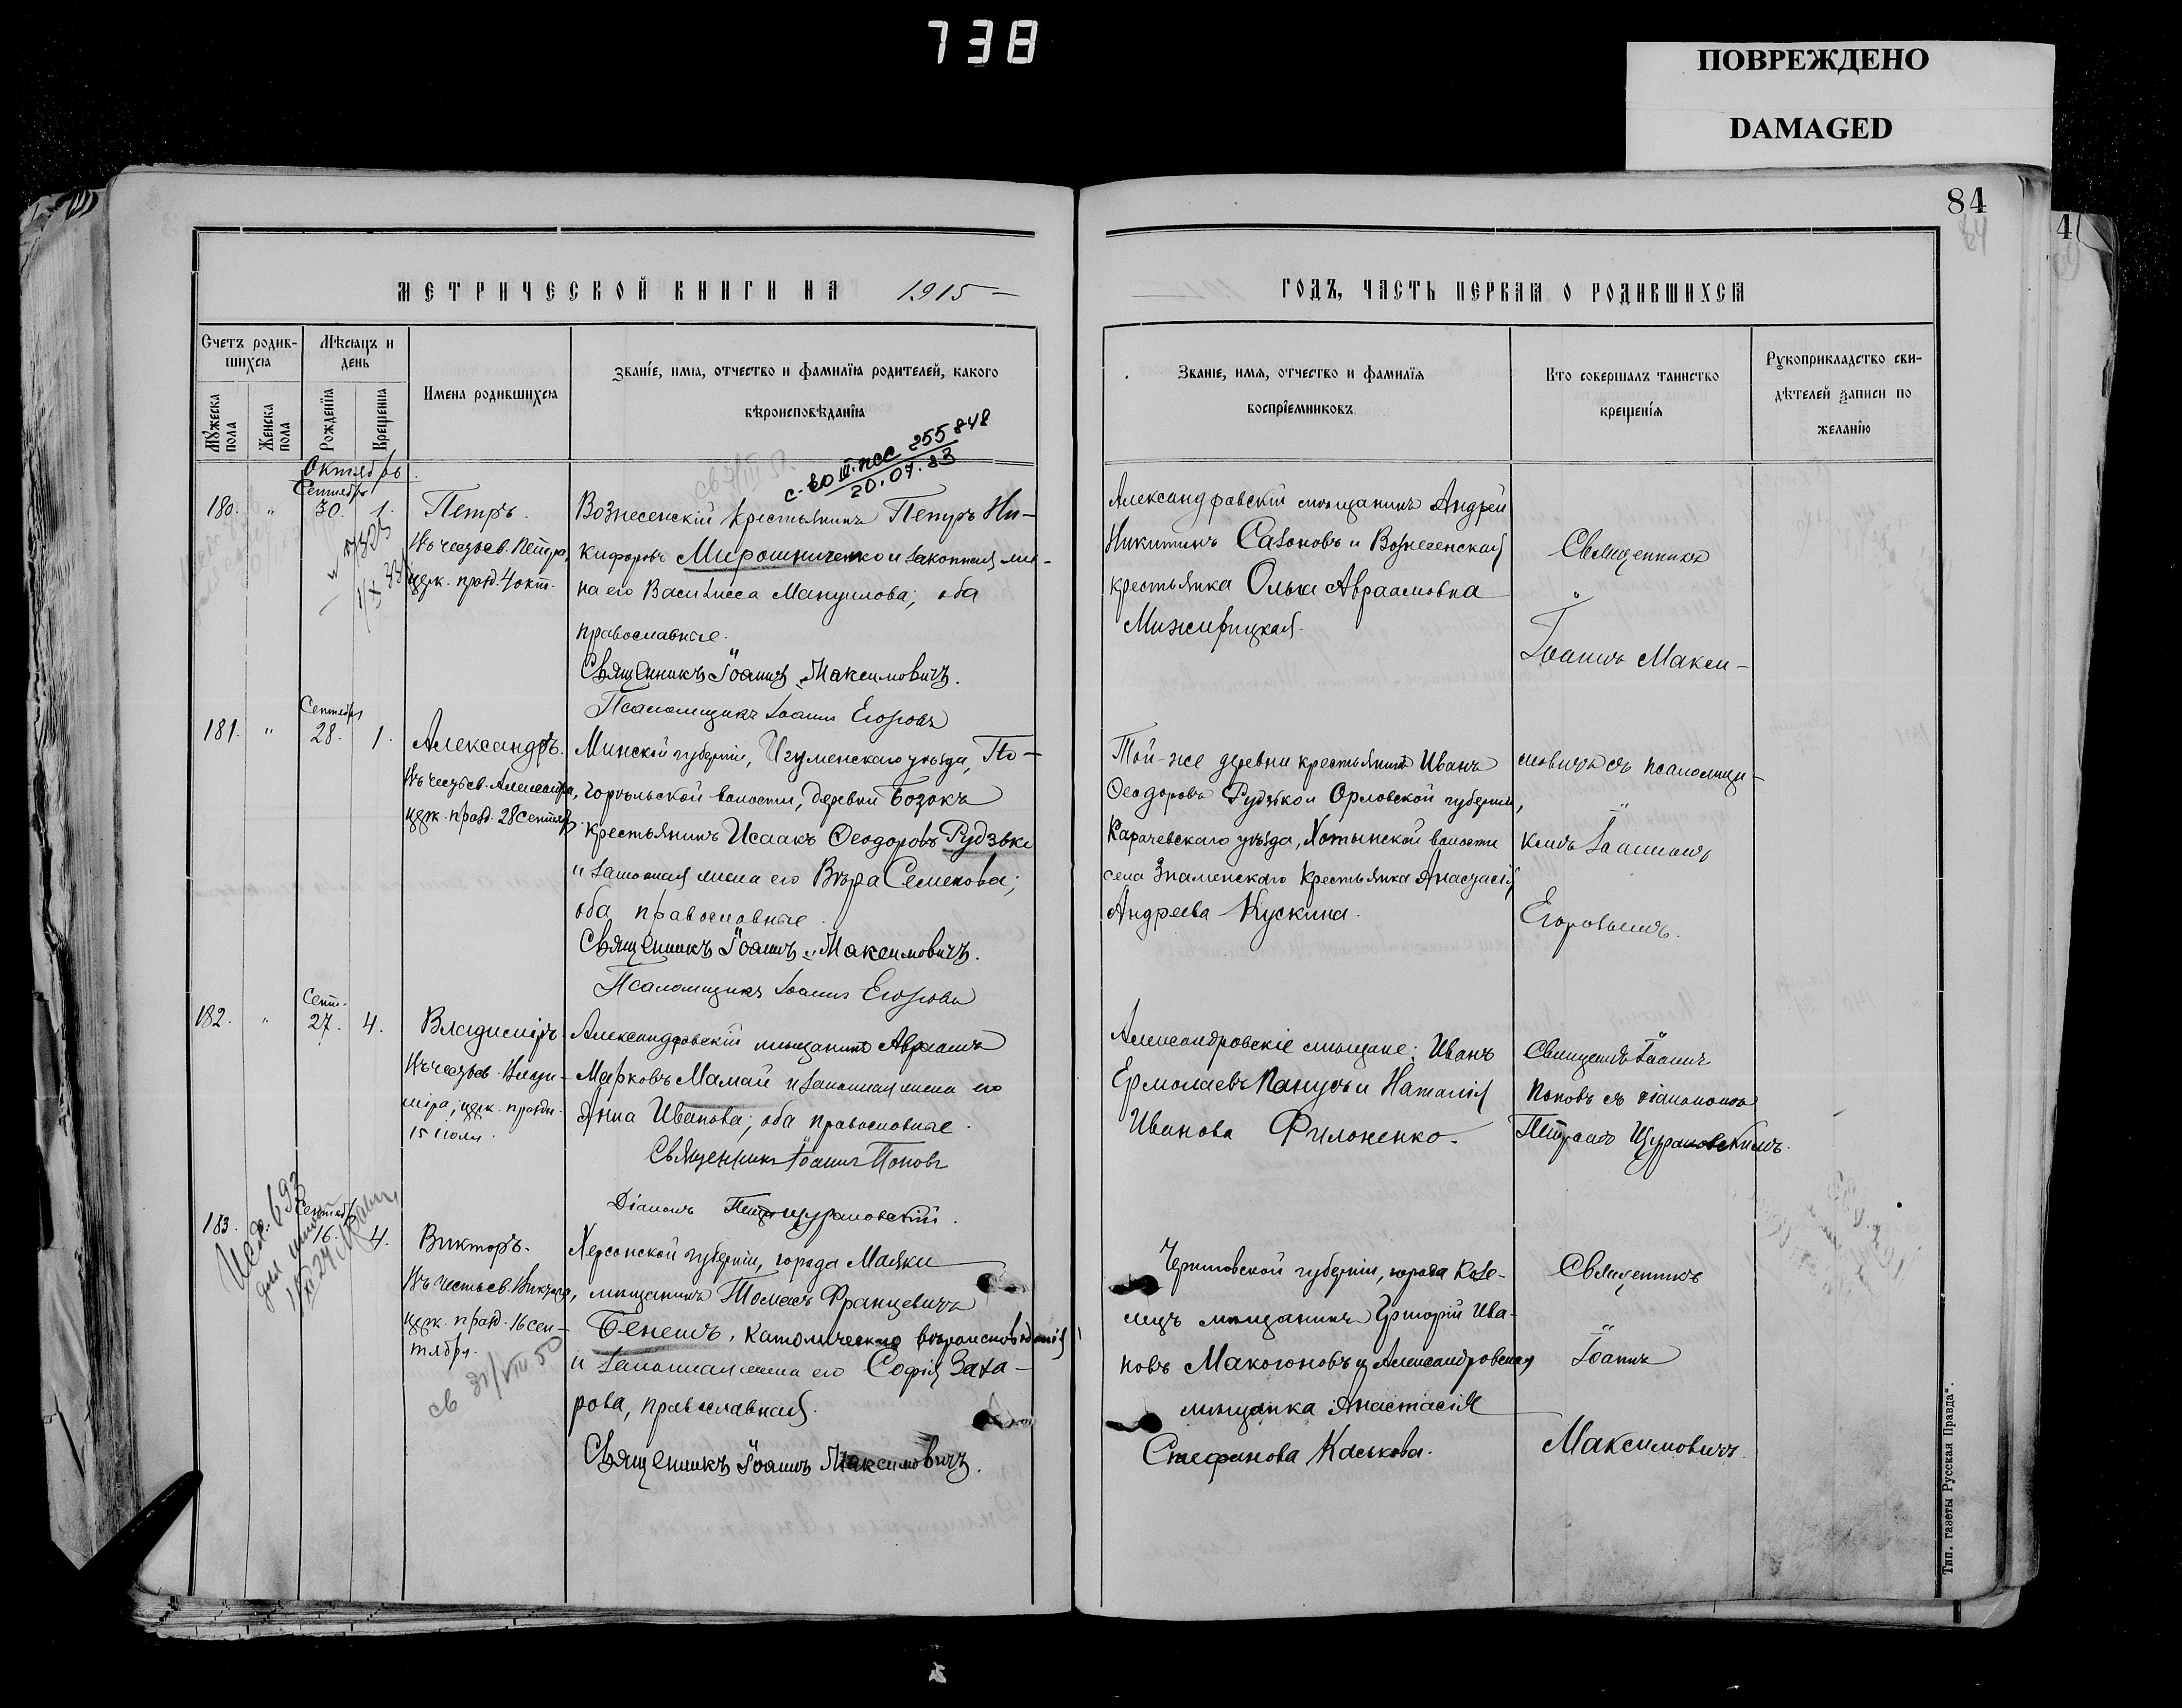 738
ПОВРЕЖДЕНО
DAMAGED
84
84
4
МЕТРИЧЕСКОЙ КНИГИ НА 1915
ГОДЪ, ЧАСТЬ ПЕРВАЯ О РОДИВШИХСЯ
Счетъ родив-
шихся
Мѣсяцъ и
день
Мужеска пола
Женска пола
Рожденїя
Крещенїя
Имена родившихся
Званіе, имя, отчество и фамилїя родителей, какого
вѣроисповѣданїя
Званіе, имя, отчество и фамилїя
воспрїемниковъ
Кто совершалъ таинство
крещенїя
Рукоприкладство сви-
дѣтелей записи по
желанїю
255848
20.07.83
Октябрь
Сентября
180. " 30. 1. Петръ.
Въ честь св. Петра,
церк. празд. 4 окт.
Вознесенскій крестьянинъ Петръ Ни-
кифоровъ Мирошниченко и законная же-
на его Василисса Мануилова; оба
православные.
Священникъ Іоаннъ Максимовичъ.
Псаломщикъ Іоаннъ Егоровъ
Александровскій мѣщанинъ Андрей
Никитинъ Сазоновъ и Вознесенская
крестьянка Ольга Авраамовна
Межирицкая.
Священникъ
Іоаннъ Макси-
Сентября
181. " 28. 1. Александръ.
Въ честь св. Александра,
церк. празд. 28 сентября
Минской губерніи, Игуменскаго уѣзда, По-
горѣльской волости, деревни Бозокъ
крестьянинъ Исаакъ Ѳеодоровъ Рудзько
и законная жена его Вѣра Семенова;
оба православные.
Священникъ Іоаннъ Максимовичъ.
Псаломщикъ Іоаннъ Егоровъ
Той-же деревни крестьянинъ Иванъ
Ѳеодоровъ Рудзько и Орловской губерніи,
Карачевскаго уѣзда, Хотынской волости
села Знаменскаго крестьянка Анастасія
Андреева Кускина.
мовичъ съ псаломщи-
комъ Іоанномъ
Егоровымъ.
Сент.
182. " 27. 4. Владиміръ.
Въ честь св. Влади-
міра, церк. праздн.
15 іюля.
Александровскій мѣщанинъ Авраамъ
Марковъ Мамай и законная жена его
Анна Иванова; оба православные.
Священникъ Іоаннъ Поповъ
Діаконъ Петръ Щурановскій.
Александровскіе мѣщане: Иванъ
Ермолаевъ Панусъ и Наталія
Иванова Филоненко.
Священникъ Іоаннъ
Поповъ съ діакономъ
Петромъ Щурановскимъ.
Сентября
183. 16. 4. Викторъ.
Въ честь св. Виктора,
церк. празд. 16 сен-
тября.
св 31/VIII 50
Херсонской губерніи, города Маяки
мѣщанинъ Томасъ Францевичъ
Бенешъ, католическаго вѣроисповѣданія
и законная жена его Софія Заха-
рова, православная.
Священникъ Іоаннъ Максимовичъ.
Черниговской губерніи, города Козе-
лецъ мѣщанинъ Григорій Ива-
новъ Макогоновъ и Александровская
мѣщанка Анастасія
Стефанова Каськова.
Священникъ
Іоаннъ
Максимовичъ.
Тип. газеты „Русская Правда“.